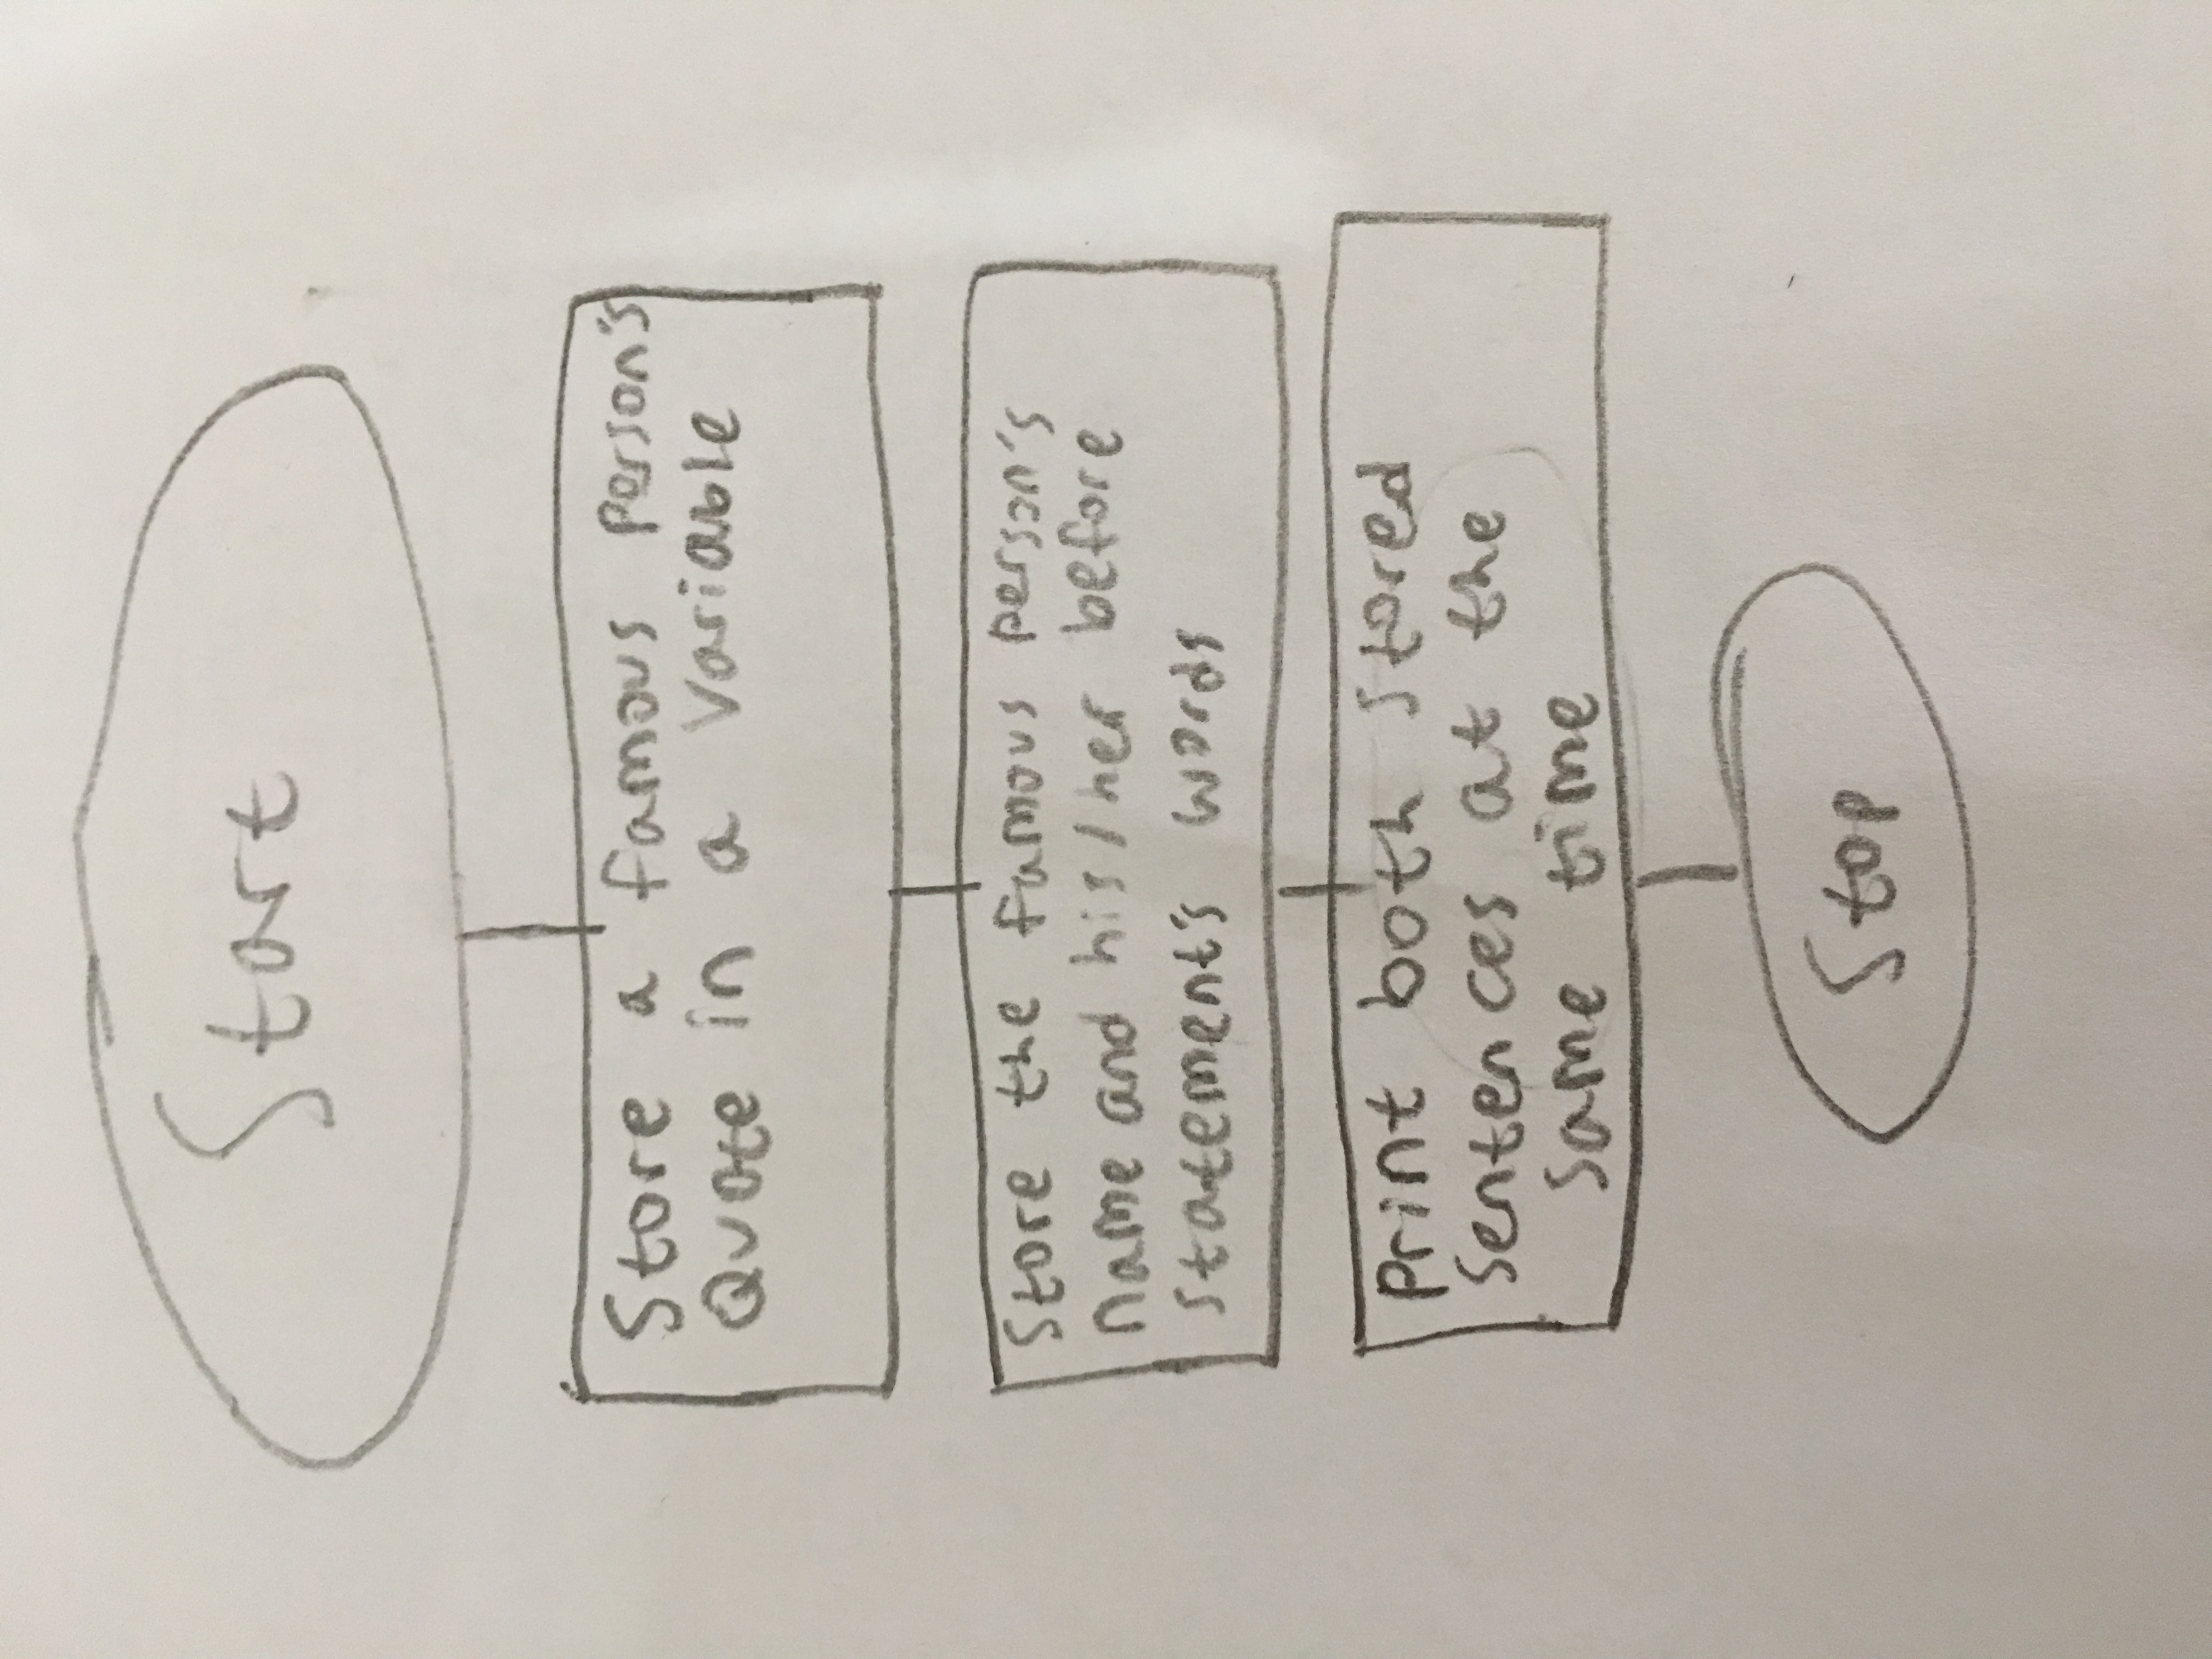 Start
Store a famous person's
Quote in a Variable
Store the famous person's
name and his/her before
statement's words
print both stored
sentences at the
same time
Stop